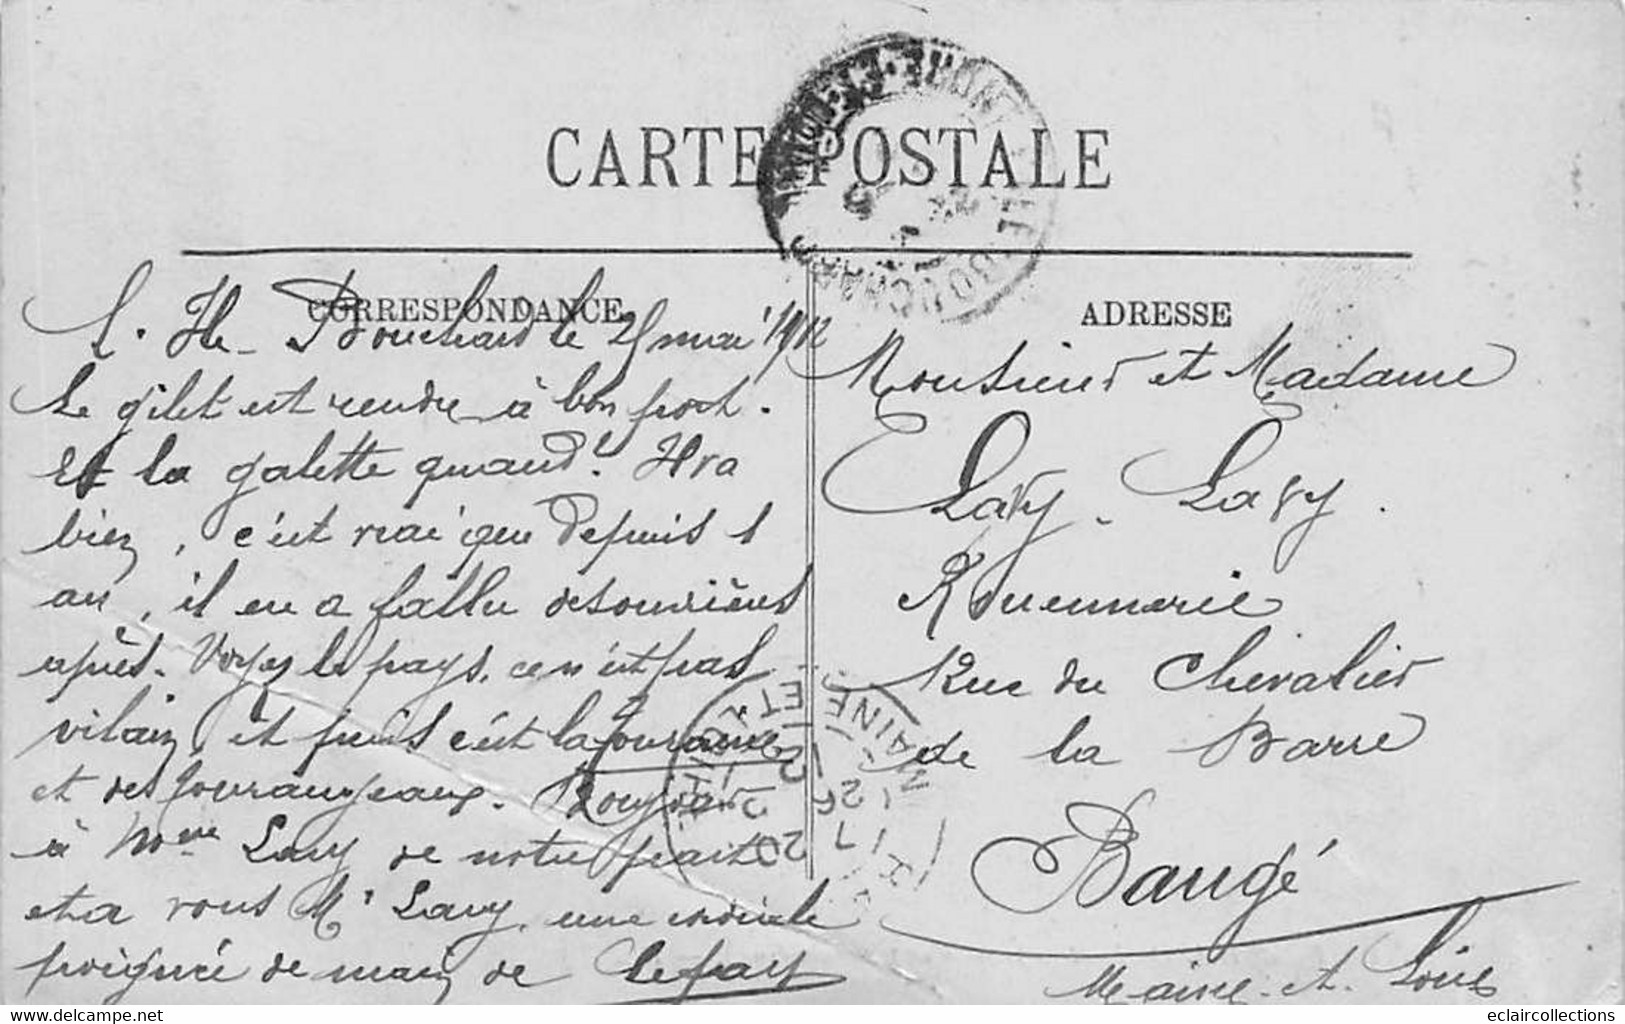 CARTE POSTALE
CORRESPONDANCE
L. Ile Bouchard le 25 mai 1912
Le gilet est rendu à bon port.
Et la galette quand! Ira
bien, c'est vrai que depuis 1
an, il en a fallu des ouvrières
après. Voyez le pays, ce n'est pas
vilain, et puis c'est la Touraine
et des Tourangeaux. Bonjour
à Mme Lavy de notre part
et a vous Mr Lavy, une cordiale
poignée de main de Lefray
ADRESSE
Monsieur et Madame
Lavy-Lavy.
Rouennerie
Rue du Chevalier
de la Barre
Baugé
Maine-et-Loire
MAINE ET LOIRE
eclaircollections
delcampe.net